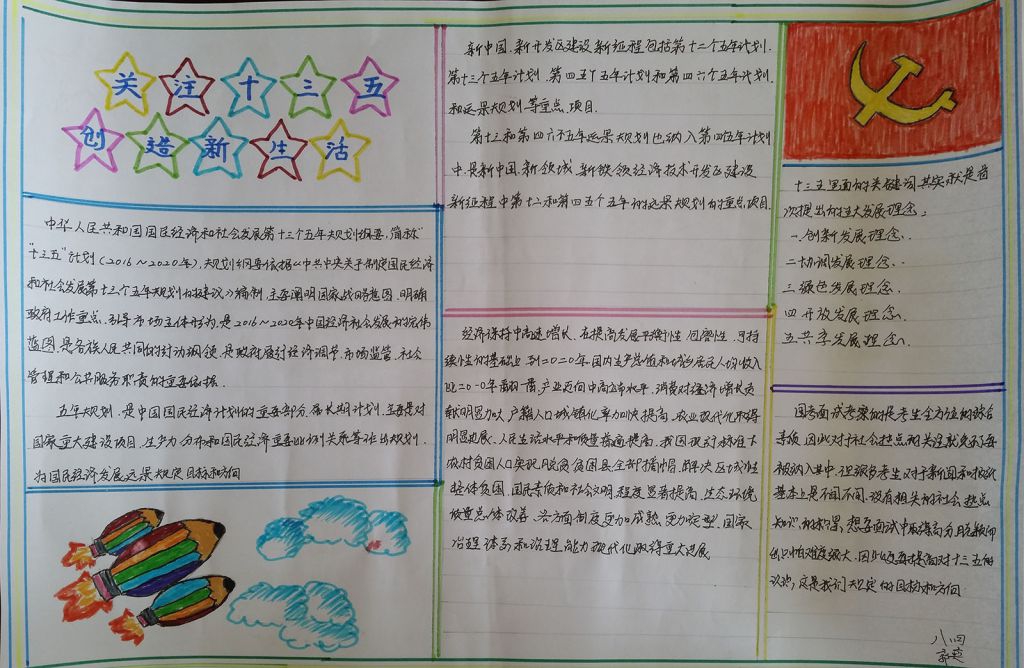 关注十三五
创造新生活
中华人民共和国国民经济和社会发展第十三个五年规划纲要，简称
"十三五"计划（2016～2020年），规划纲要依据《中共中央关于制定国民经济
和社会发展第十三个五年规划的建议》编制，主要阐明国家战略意图，明确
政府工作重点，引导市场主体行为，是2016～2020年中国经济社会发展的宏伟
蓝图，是各族人民共同的行动纲领，是政府履行经济调节，市场监管，社会
管理和公共服务职责的重要依据。
五年规划，是中国国民经济计划的重要部分，属长期计划，主要是对
国家重大建设项目，生产力分布和国民经济重要比例关系等作出规划，
为国民经济发展远景规定目标和方向
新中国，新开发区建设新征程包括第十二个五年计划，
第十三个五年计划，第四五个五年计划和第四六个五年计划
和远景规划等重点项目。
第十三和第四六个五年远景规划也纳入第四五年计划
中，是新中国，新领域，新铁领经济技术开发区建设
新征程中第十二和第四五个五年的远景规划的重点项目。
经济保持中高速增长，在提高发展平衡性，包容性，可持
续性的基础上，到二〇二〇年国内生产总值和城乡居民人均收入
比二〇一〇年翻一番，产业迈向中高端水平，消费对经济增长贡
献明显加大，户籍人口城镇化率加快提高，农业现代化取得
明显进展，人民生活水平和质量普遍提高，我国现行标准下
农村贫困人口实现脱贫，贫困县全部摘帽，解决区域性
整体贫困，国民素质和社会文明程度显著提高，生态环境
质量总体改善，各方面制度更加成熟更加定型，国家
治理体系和治理能力现代化取得重大进展
十三五里面的关键词，其实就是首
次提出的五大发展理念：
一创新发展理念．
二协调发展理念．
三绿色发展理念．
四开放发展理念．
五共享发展理念．
国考面试考察的是考生全方位的综合
素质，因此对于社会热点的关注就免不了要
被纳入其中，但很多考生对于新闻和报纸
基本上是不闻不问，没有相关的社会热点
知识的积累，想要面试中取得高分
八四